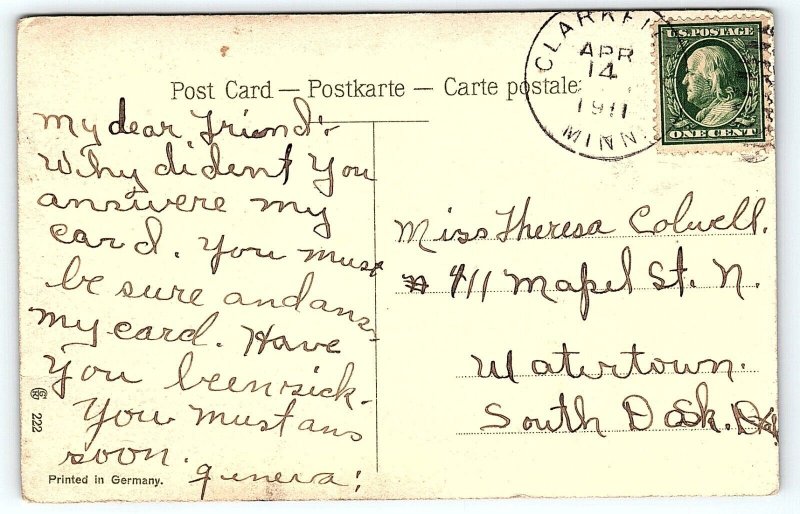 CLARKFI
APR
14
1911
MINN.
U.S. POSTAGE
ONE CENT
Post Card — Postkarte — Carte postale
My dear friend:
Why dident you
answere my
card. You must
be sure and ans-
my card. Have
you been sick.
You must ans
soon.
geneva;
Miss Theresa Colwell.
# 411 Mapel St. N.
Watertown.
South Dask. Dak
222
Printed in Germany.